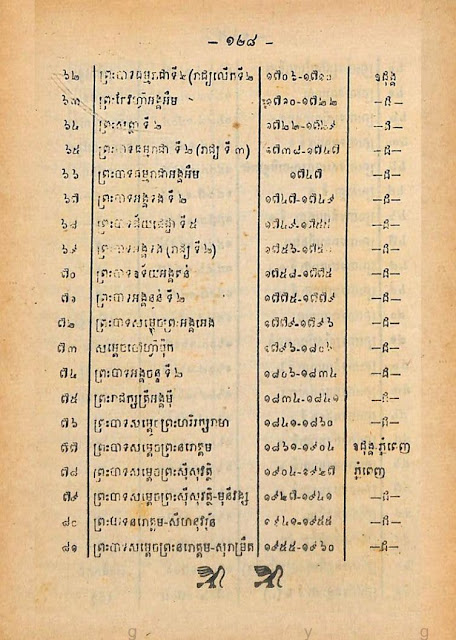 — ១២៨ —
៦២ ព្រះបាទធម្មរាជាទី៤ (រាជ្យលើកទី២ ១៧០៦-១៧១០ ឧដុង្គ
៦៣ ព្រះកែវហ៊្វាអង្គអឹម ១៧១០-១៧២២ —ដ—
៦៤ ព្រះសត្ថា ទី ២ ១៧២២-១៧៣៨ —ដ—
៦៥ ព្រះបាទធម្មរាជា ទី ២ (រាជ្យ ទី ៣) ១៧៣៨-១៧៤៧ —ដ—
៦៦ ព្រះបាទធម្មរាជាអង្គអឹម ១៧៤៧ —ដ—
៦៧ ព្រះបាទអង្គទង ទី ២ ១៧៤៧-១៧៤៩ —ដ—
៦៨ ព្រះបាទជ័យជេដ្ឋា ទី ៥ ១៧៤៩-១៧៥៥ —ដ—
៦៩ ព្រះបាទអង្គទង (រាជ្យ ទី ២) ១៧៥៦-១៧៥ —ដ—
៧០ ព្រះបាទឧទ័យអង្គតន់ ១៧៥៨-១៧៧៥ —ដ—
៧១ ព្រះបាទអង្គនន់ ទី ២ ១៧៧៥-១៧៧៩ —ដ—
៧២ ព្រះបាទសម្តេចព្រះអង្គអេង ១៧៧៩-១៧៩៦ —ដ—
៧៣ សម្តេចចៅហ្វ៊ាប៉ុក ១៧៩៦-១៨០៦ —ដ—
៧៤ ព្រះបាទអង្គចន្ទ ទី ២ ១៨០៦-១៨៣៤ —ដ—
៧៥ ព្រះរាជក្សត្រីអង្គម៉ី ១៨៣៤-១៨៤១ —ដ—
៧៦ ព្រះបាទសម្តេចព្រះហរិរក្សរាមា ១៨៤១-១៨៦០ —ដ—
៧៧ ព្រះបាទសម្តេចព្រះនរោត្តម ១៨៦១-១៩០៤ ឧដុង្គ.ភ្នំពេញ
៧៨ ព្រះបាទសម្តេចព្រះស៊ីសុវត្ថិ ១៩០៤-១៩២៧ ភ្នំពេញ
៧៩ ព្រះបាទសម្តេចព្រះស៊ីសុវត្ថិ-មុនីវង្ស ១៩២៧-១៩៤១ —ដ—
៨០ ព្រះបាទនរោត្តម-សីហនុវរ្ម័ន ១៩៤១-១៩៥៥ —ដ—
៨១ ព្រះបាទសម្តេចព្រះនរោត្តម-សុរាម្រឹត ១៩៥៥-១៩៦០ —ដ—